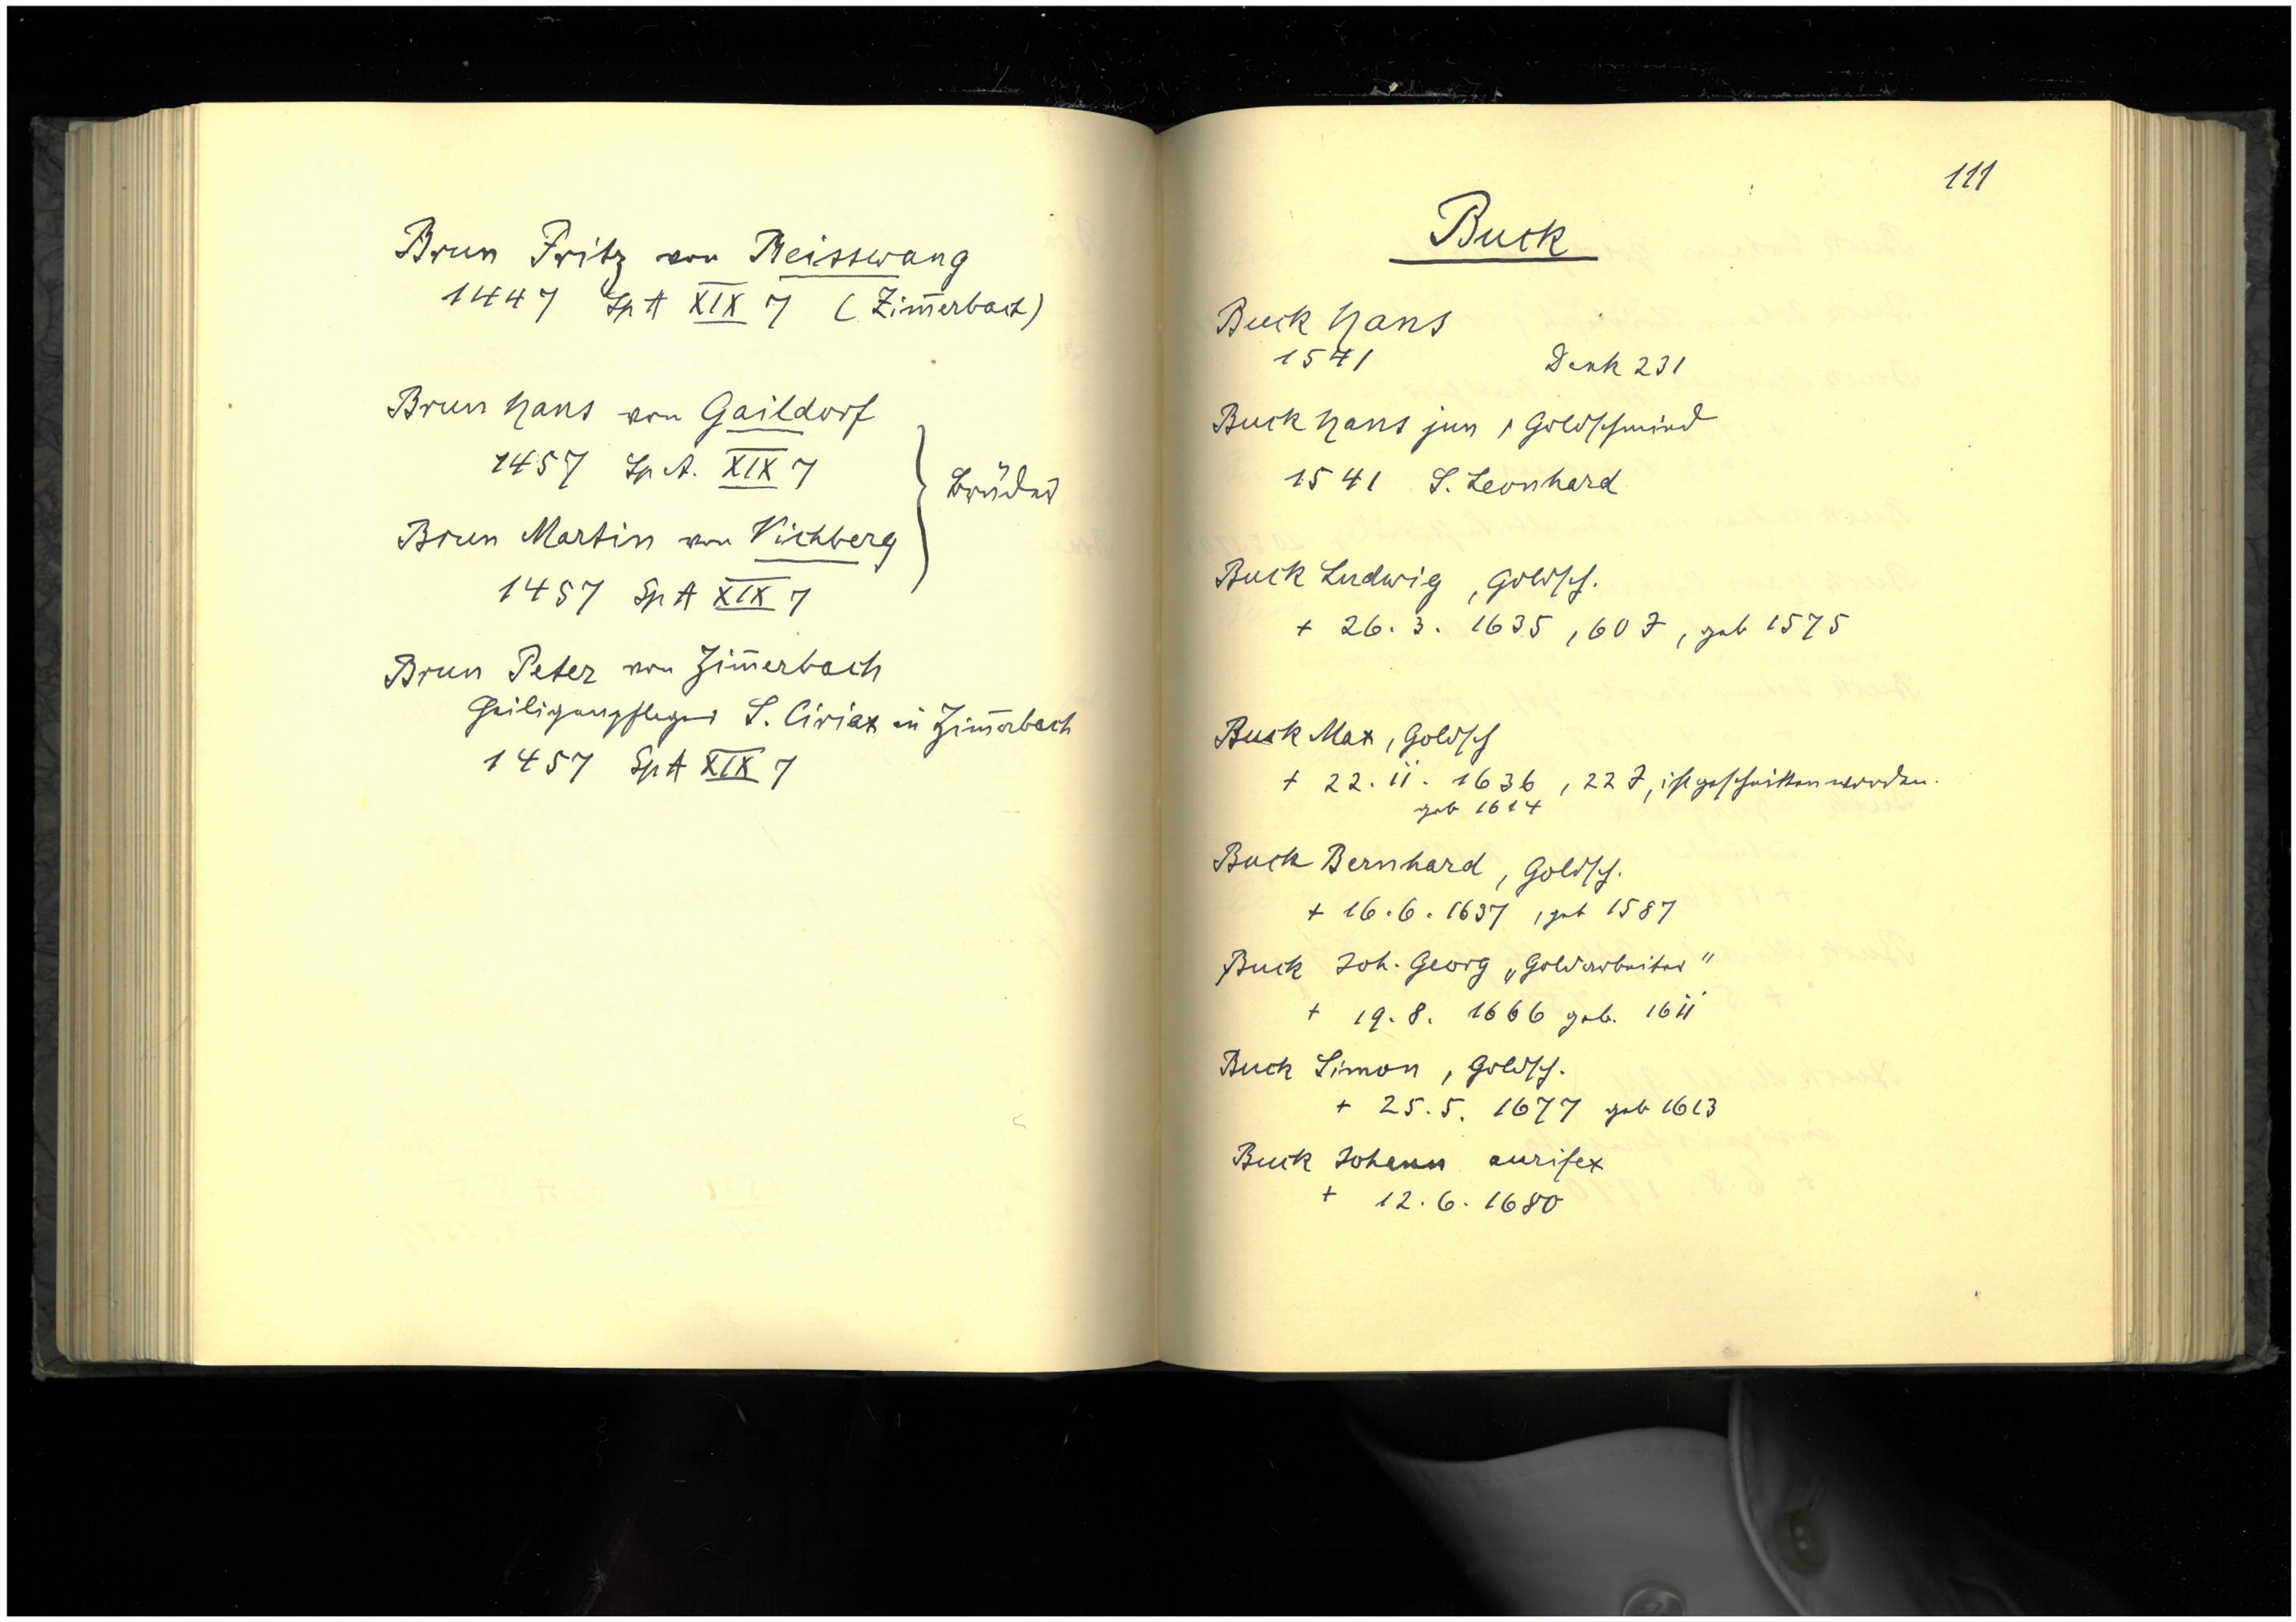 Brun Fritz von Beisswang
1447 Sp A XIX 7 (Zim̄erbach)
Brun Hans von Gaildorf
1457 Sp A. XIX 7
Brüder
Brun Martin von Vichberg
1457 Sp A XIX 7
Brun Peter von Zim̄erbach
Heiligenpfleger S. Ciriax in Zim̄erbach
1457 Sp A XIX 7
111
Buck
Buck Hans
1541 Denk 231
Buck Hans jun, Goldschmied
1541 S. Leonhard
Buck Ludwig, Goldsch.
+ 26. 3. 1635, 60 J, geb 1575
Buck Max, Goldsch
+ 22. 11. 1636, 22 J, ist geschnitten worden.
geb 1614
Buck Bernhard, Goldsch.
+ 16. 6. 1637, geb 1587
Buck Joh. Georg „Goldarbeiter"
+ 19. 8. 1666 geb. 1611
Buck Simon, Goldsch.
+ 25. 5. 1677 geb 1613
Buck Johann aurifex
+ 12. 6. 1680